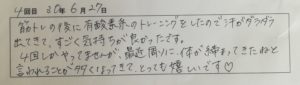 4回目 30年6月27日
筋トレの後に有酸素系のトレーニングをしたので汗がダラダラ
出てきて、すごく気持ちが良かったです。
4回しかやってませんが、最近周りに、体が締まってきたねと
言われることが多くなってきて、とっても嬉しいです♡